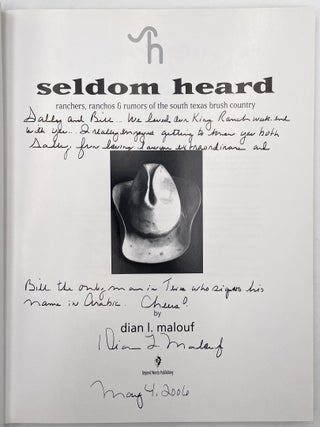 seldom heard
ranchers, ranchos & rumors of the south texas brush country
Sally and Bill – We loved our King Ranch week-end
with you – I really enjoyed getting to know you both
Sally, fun loving lawyer extraordinaire and
Bill the only man in Texas who signs his
name in Arabic. Cheers!
by
dian l. malouf
Dian L Malouf
Beyond Words Publishing
May 4, 2006